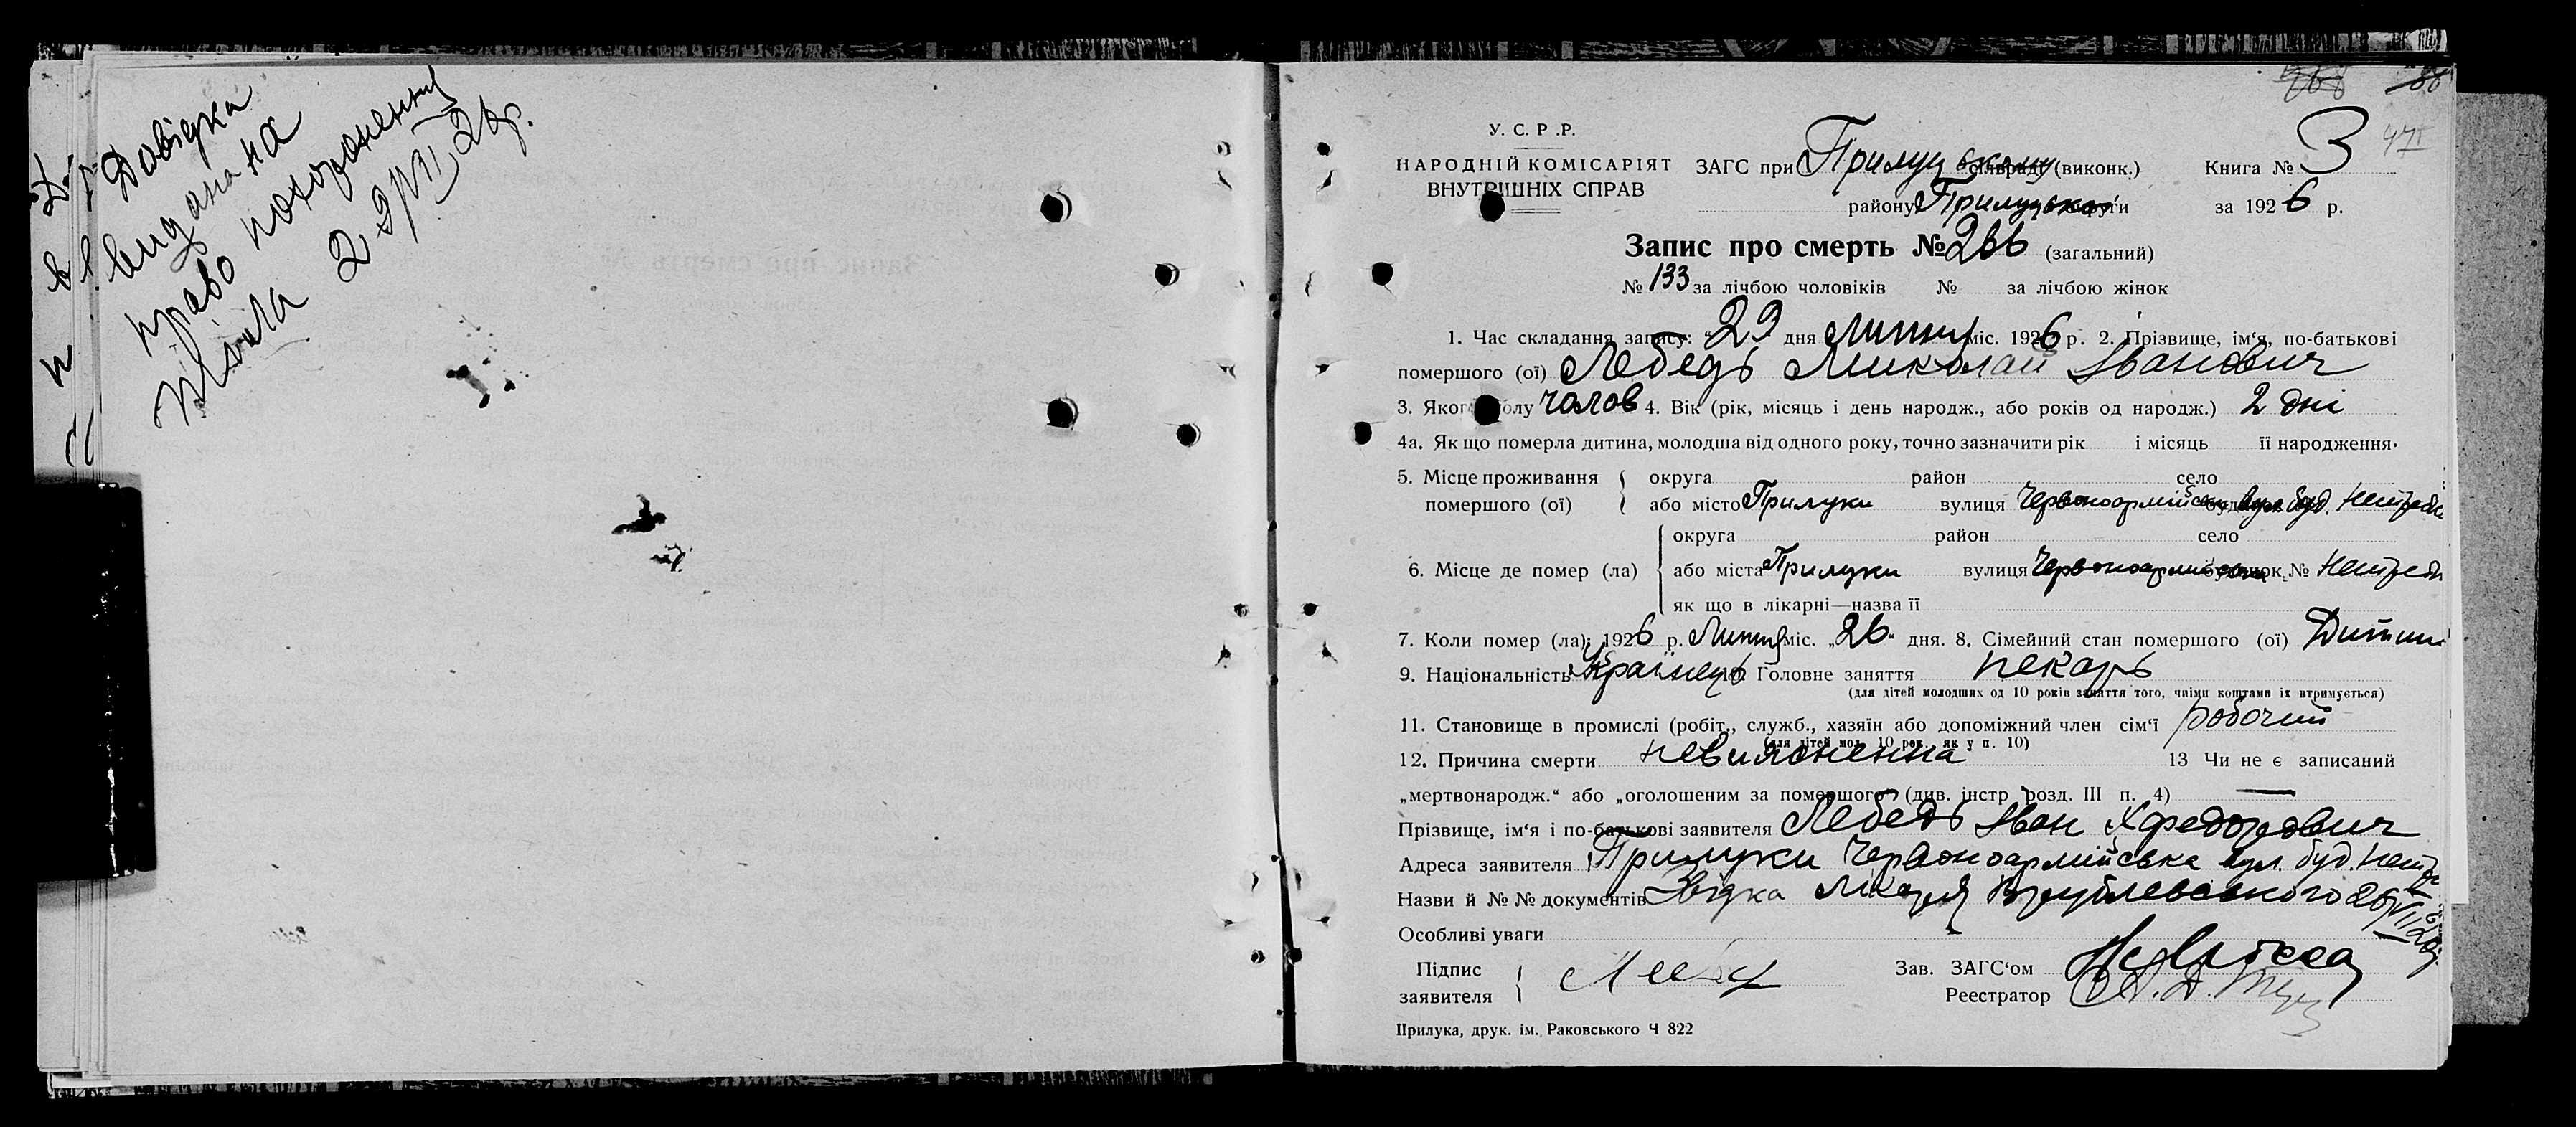 Довідка
видана на
право похоронення
29/VII 26 р.
88
471
У. С. Р. Р.
НАРОДНІЙ КОМІСАРІЯТ
ВНУТРІШНІХ СПРАВ
ЗАГС при Прилуцькому сільраді (виконк.)
району Прилуцької округи
Книга № 3
за 1926 р.
Запис про смерть № 266 (загальний)
№ 133 за лічбою чоловіків № за лічбою жінок
1. Час складання запису: „29 дня Липня міс. 1926 р. 2. Прізвище, ім‘я, по-батькові
помершого (ої) Лебедь Миколай Іванович
3. Якого полу чолов 4. Вік (рік, місяць і день народж., або років од народж.) 2 дні
4а. Як що померла дитина, молодша від одного року, точно зазначити рік і місяць її народження.
5. Місце проживання помершого (ої) округа район село
або місто Прилуки вулиця Червоноармійська вул. буд.
6. Місце де помер (ла) округа район село
або міста Прилуки вулиця Червоноармійська будинок №
як що в лікарні—назва її
7. Коли помер (ла): 1926 р. Липня міс. „26“ дня. 8. Сімейний стан помершого (ої) Дитина
9. Національність Українець 10. Головне заняття пекарь
(для дітей молодших од 10 років заняття того, чиїми коштами їх втримується)
11. Становище в промислі (робіт., служб., хазяїн або допоміжний член сім‘ї робочий
(для дітей мол. 10 рок. як у п. 10)
12. Причина смерти невияснена 13 Чи не є записаний
„мертвонародж.“ або „оголошеним за помершого“ (див. інстр розд. III п. 4) —
Прізвище, ім‘я і по-батькові заявителя Лебедь Іван Хфедорович
Адреса заявителя Прилуки Червоноармійська вул. буд.
Назви й №№ документів Звідка лікаря Врублевського 26/VII 26 р.
Особливі уваги
Підпис заявителя
Зав. ЗАГС‘ом
Реестратор
Прилука, друк. ім. Раковського Ч 822